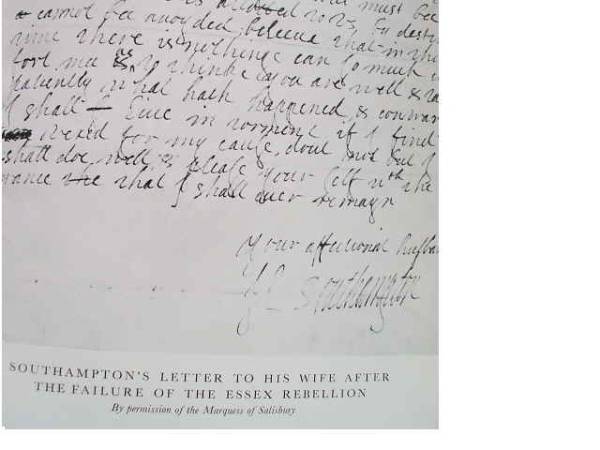 must bee
cannot bee avoyded, beleeve that in the
time there is nothinge can so much
fort mee as to thinke you are well &
patiently what hath happened, &
I shall live in torment if I find
vexed for my cause, dout not but I
shall doe well & please your self wth the
rance that I shall ever remayn
Your affectionat husban
Southampton
SOUTHAMPTON'S LETTER TO HIS WIFE AFTER
THE FAILURE OF THE ESSEX REBELLION
By permission of the Marquess of Salisbury